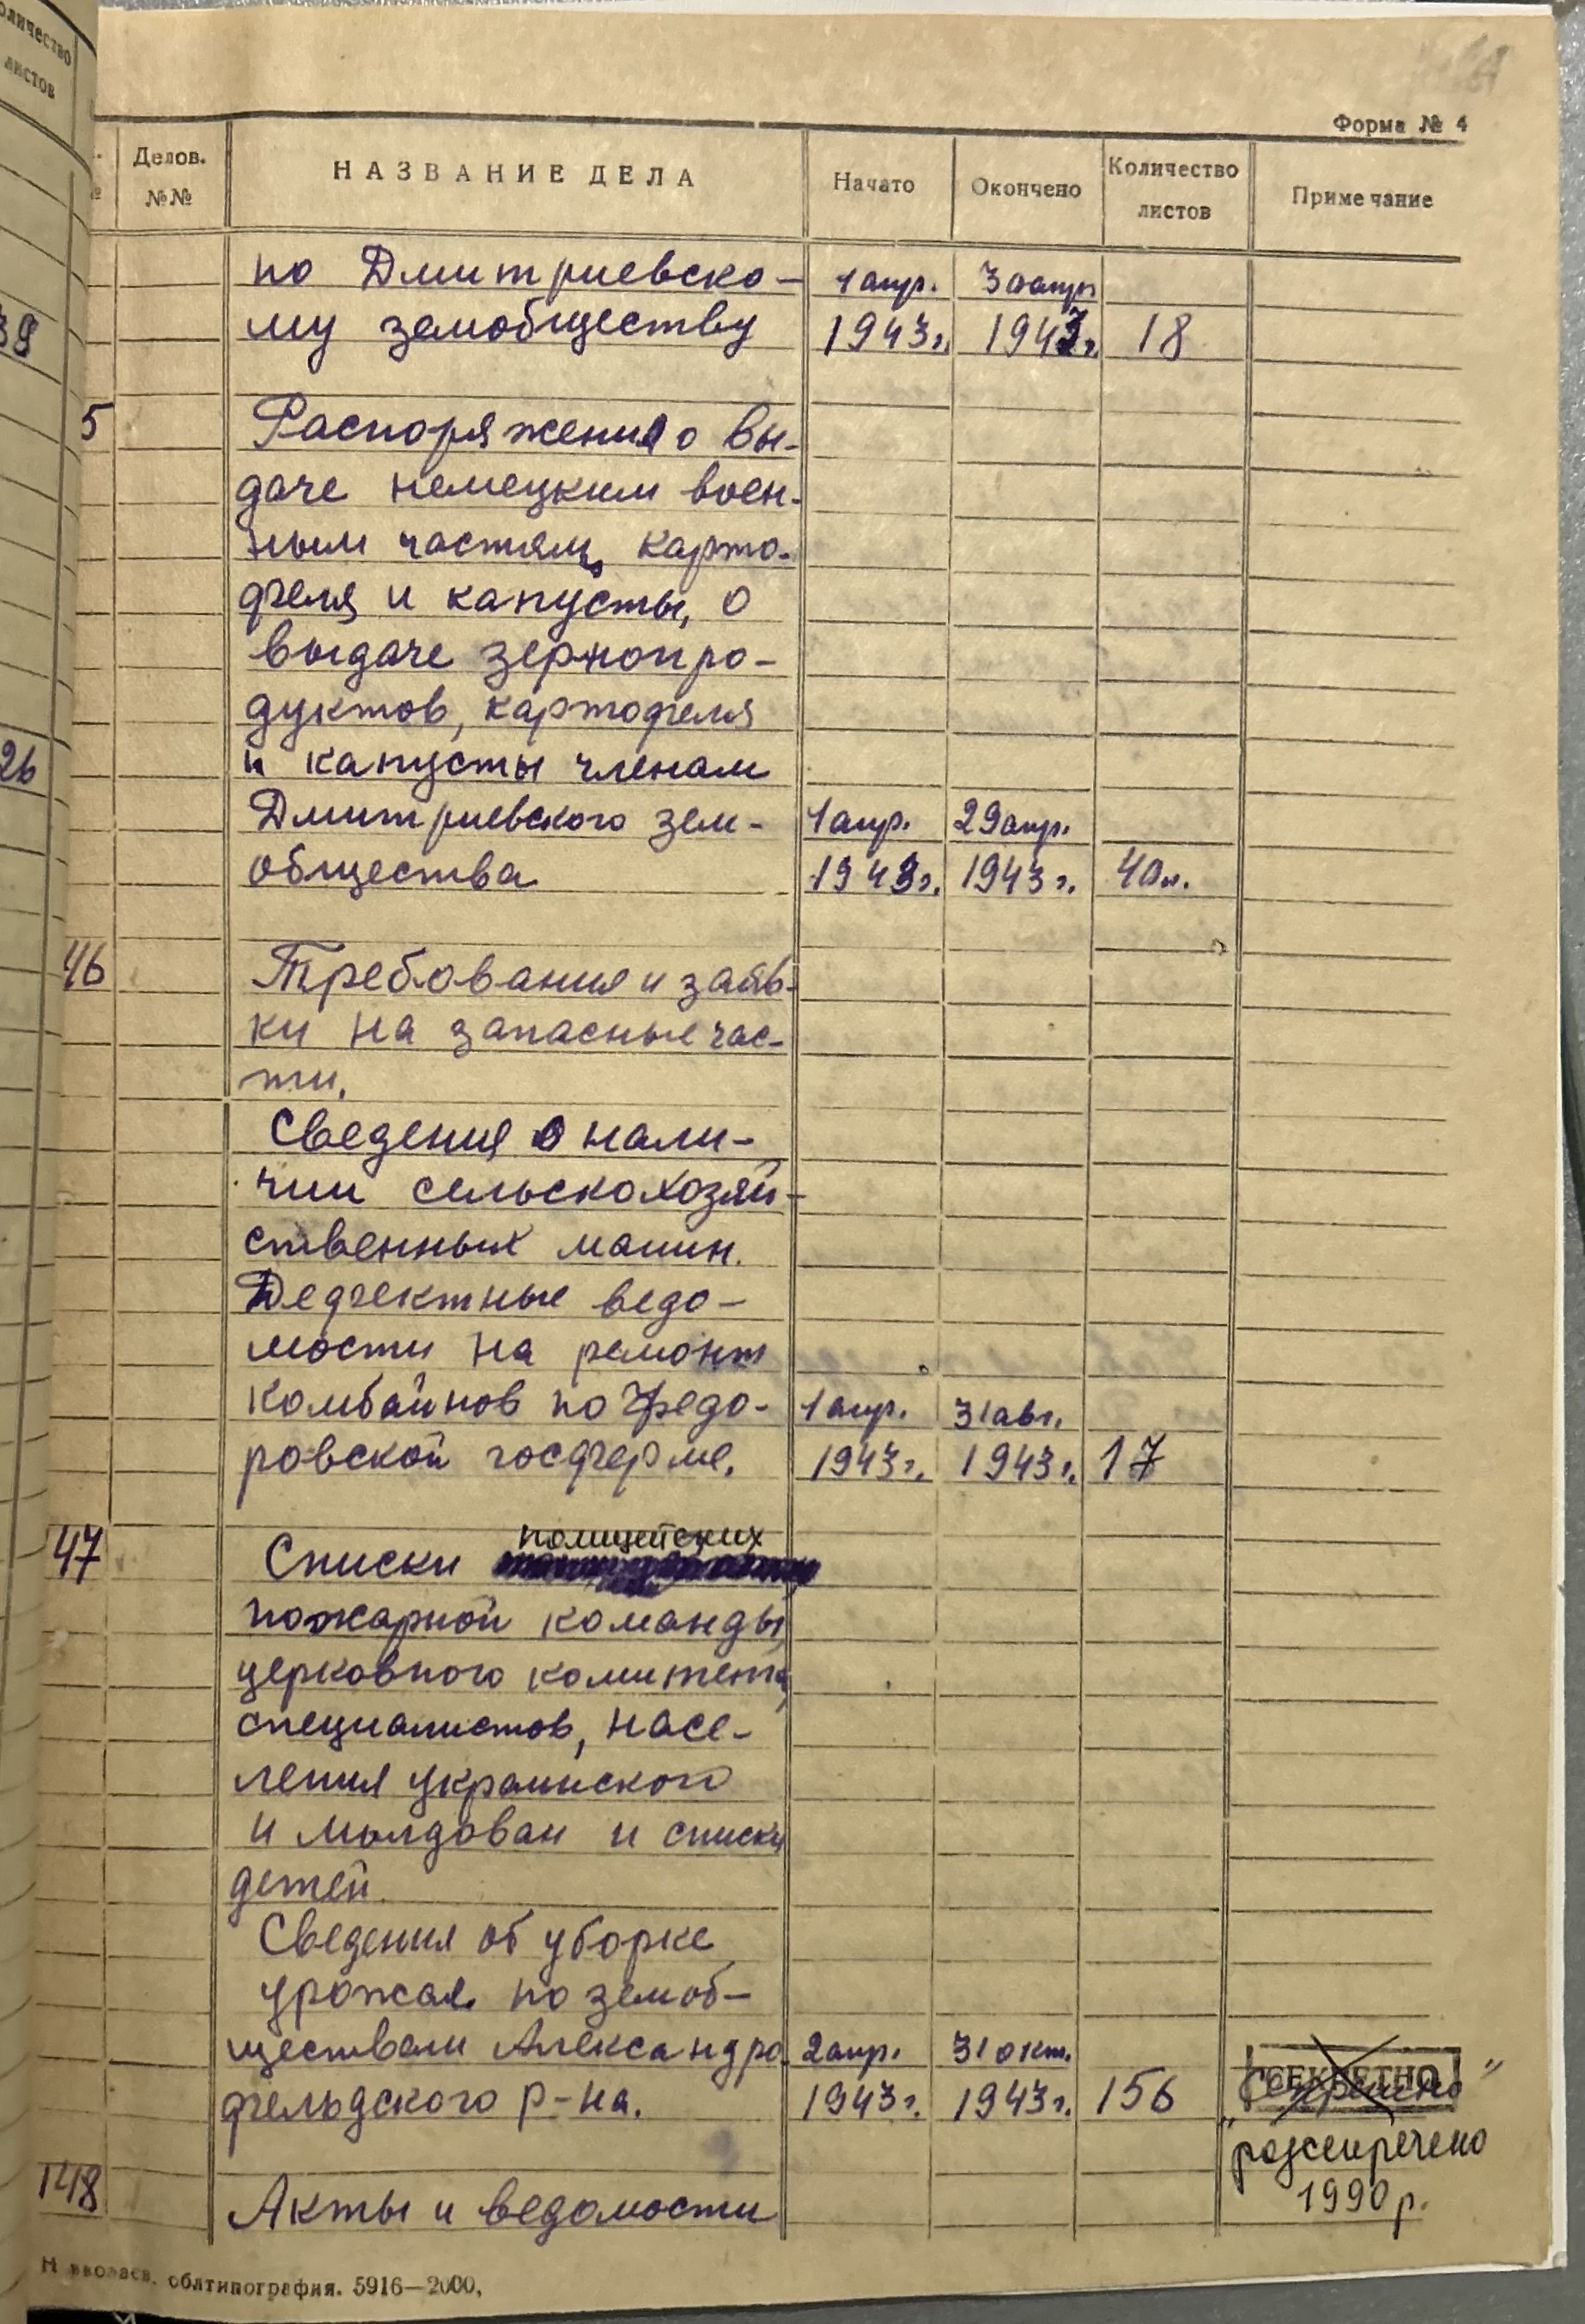 оличество
листов
39
26
Форма № 4
Делов.
№№
НАЗВАНИЕ ДЕЛА
Начато
Окончено
Количество
листов
Примечание
по Дмитриевско- 1 апр. 30 апр
му земобществу 1943г. 1943г. 18
5 Распоряжения о вы-
даче немецким воен-
ным частям, карто-
феля и капусты, о
выдаче зернопро-
дуктов, картофеля
и капусты членам
Дмитриевского зем- 1 апр. 29 апр.
общества 1943г. 1943г. 40л.
46 Требования и заяв-
ки на запасные час-
ти.
Сведения о нали-
чии сельскохозяй-
ственных машин.
Дефектные ведо-
мости на ремонт
комбайнов по Федо- 1 апр. 31 авг.
ровской госферме. 1943г. 1943г. 17
полицейских
47 Списки
пожарной команды,
церковного комитета,
специалистов, насе-
ления украинского
и молдован и списки
детей.
Сведения об уборке
урожая по земоб-
ществам Александро 2 апр. 31 окт. СЕКРЕТНО
фельдского р-на. 1943г. 1943г. 156
"розсекречено"
1990р.
148 Акты и ведомости
Николаев, облтипография. 5916—2000,